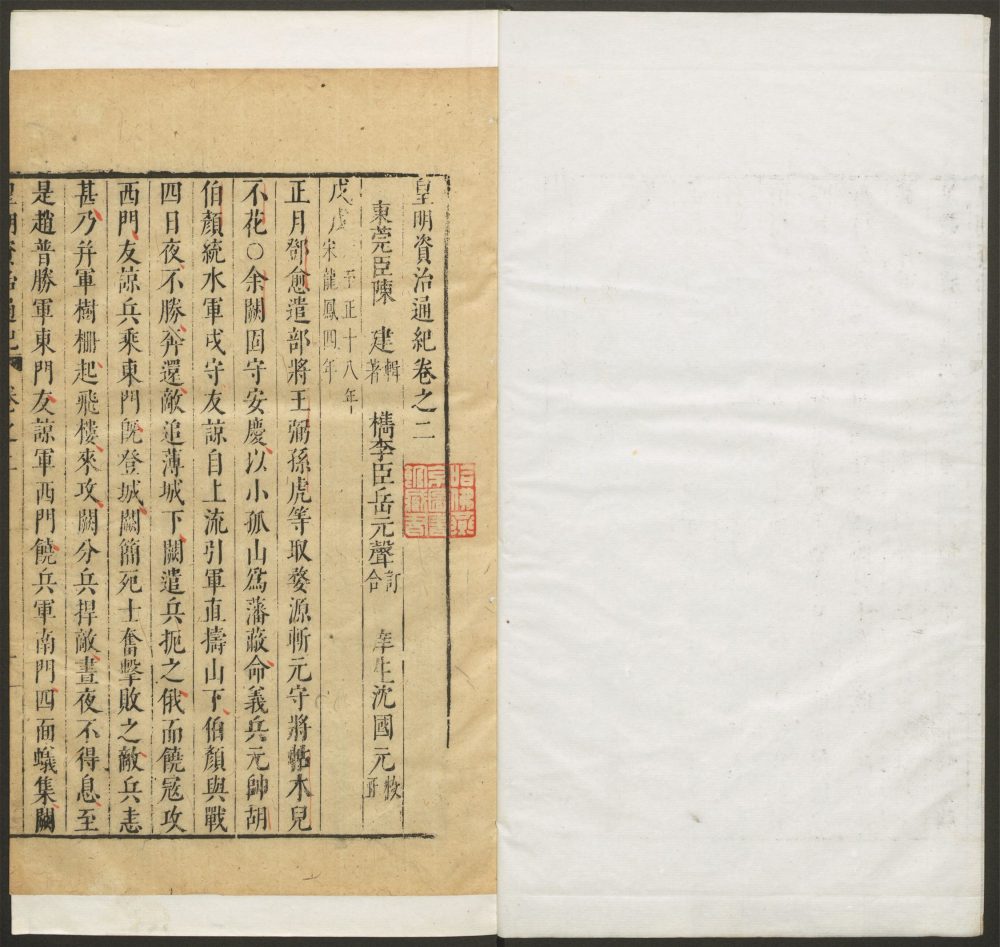 皇明資治通紀卷之二
東莞臣陳 建輯著 檇李臣岳元聲訂合 生沈國元
戊戌 至正十八年 宋龍鳳四年
正月鄧愈遣部將王弼孫虎等取婺源斬元守將帖木兒
不花○余闕固守安慶以小孤山為藩蔽命義兵元帥胡
伯顏統水軍戍守友諒自上流引軍直擣山下伯顏與戰
四日夜不勝奔還敵追薄城下闕遣兵扼之俄而饒冦攻
西門友諒兵乘東門旣登城闕簡死士奮擊敗之敵兵恚
甚乃幷軍樹柵起飛樓來攻闕分兵捍敵晝夜不得息至
是趙普勝軍東門友諒軍西門饒兵軍南門四面蟻集闕
哈佛